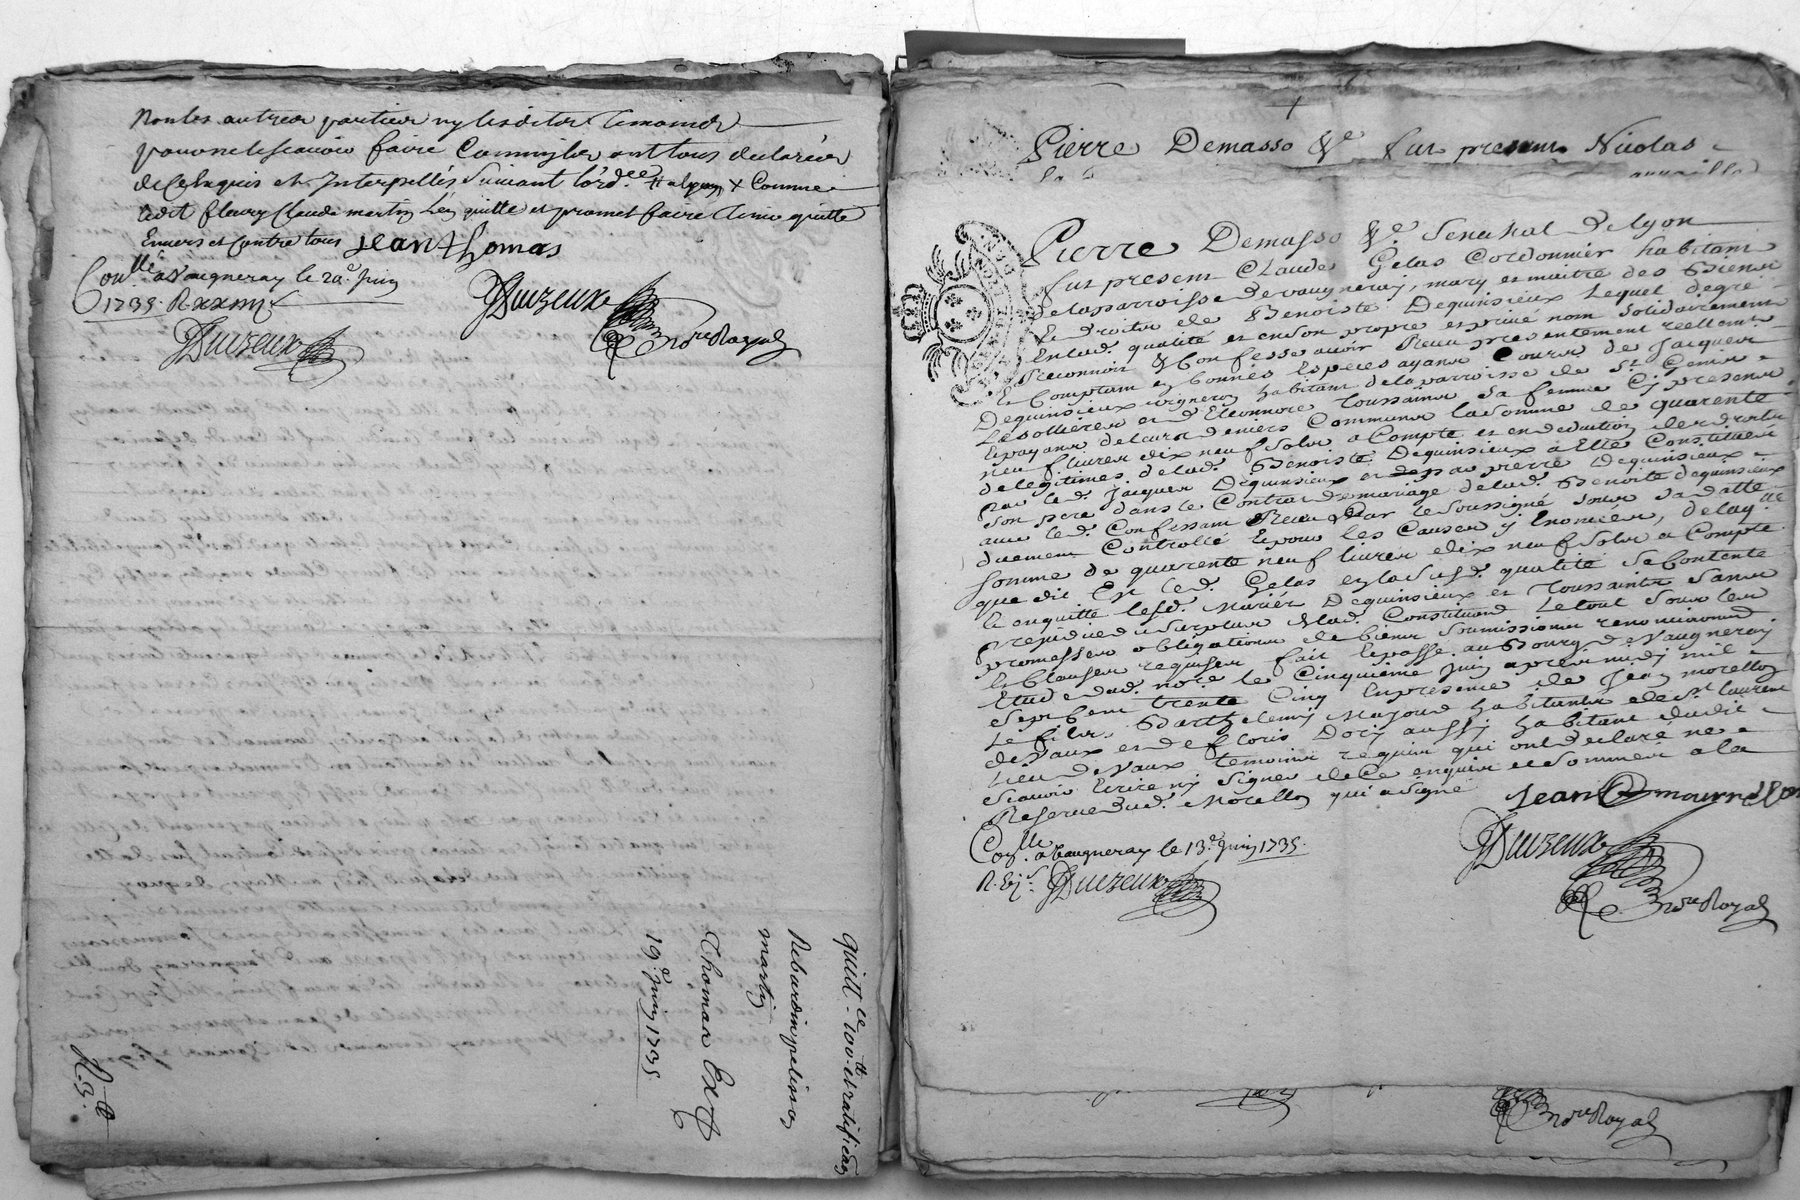 Non les autres parties ny lesditst temoins
pour ne le scavoir faire Comm'ils ont tous declarées
de ce Enquis et Interpellés Suivant l'ord.ce
Ledit fleury Claude martin quitte et promet faire tenir quitte
Envers et Contre tous Jean thomas
Con.llé a Vaugneray le 20e Juin
1735. R xxiiii s
JDuizeux
JDuizeux
No.re Royal
quitt.ce 100.tt et ratification
Rebardin pelisson
martin
Thomas Ex
19.e Juin 1735
Pierre Demasso &c.e fut present Nicolas
Pierre Demasso &.e Senechal de Lyon
fut present Claude Gelas Cordonnier habitant
de la parroisse de vaugneray, mary et maitre des Biens
& droits de Benoiste Dequinsieux Lequel de gré
En lad. qualité et en son propre et privé nom solidairement
Reconnoit & Confesse avoir Receu presentement reellem.t
& Comptant en bonnes Especes ayant Cours de Jacques
Dequinsieux vigneron habitant de la parroisse de S.t Genis
Les ollieres et d'Eleonnore toussaint sa femme Cy presens
Et payant de leurs deniers Communs la somme de quarente
neuf livres dix neuf sols a Compte et en deduction des droits
de legitimes de lad. Benoiste Dequinsieux a Elle Constitués
Par led. Jacques Dequinsieux et par pierre Dequinsieux
son pere dans le Contrat de mariage de lad. Benoite dequinsieux
avec led. Confessant Receu Par le soussigné sous sa datte
duement Controllé Et pour les Causes y Enoncées, de laq.lle
somme de quarente neuf livres dix neuf sols a Compte
que dit Est led. Gelas en lad. qualité se Contente
& en quitte lesd. Mariés Dequinsieux et Toussaints sans
Prejudice du surplus & lad. Constitution Le tout sous les
promesses obligations de biens soumissions renonciations
& Clauses requises fait & passé au Bourg de Vaugneray
Etude dud. no.re le Cinquieme Juin apres midy mil
sept Cent trente Cinq En presence de Jean morellon
Le fils, Barthelemy Mayoud habitants de S.t laurent
de Vaux et de floris Dory aussy habitant dudit
Lieu de Vaux temoins requis qui ont declaré ne
scavoir Ecrire ny signer de Ce enquis et sommés a la
Reserve dud. Morellon qui a signé Jean morrellon
Con.llé a Vaugneray le 13.e Juin 1735.
R. Ej s. JDuizeux
JDuizeux
No.re Royal
No.re Royal